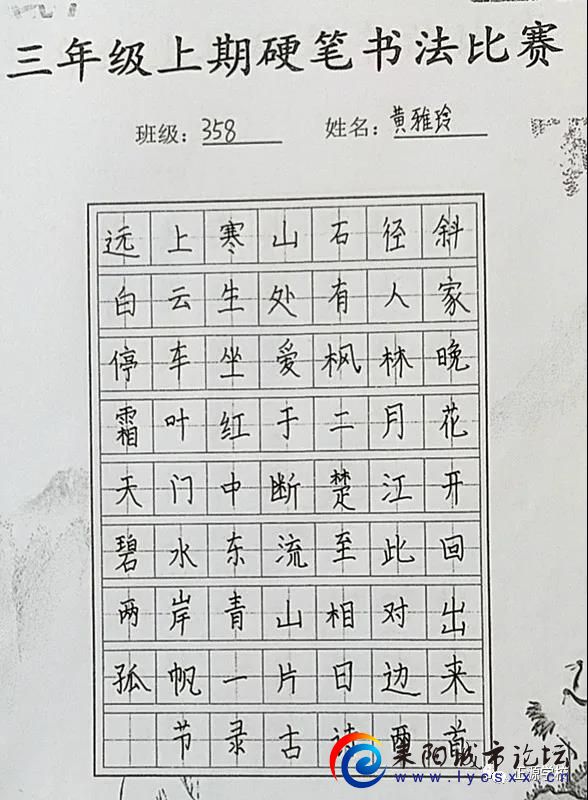 三年级上期硬笔书法比赛
班级：358 姓名：黄雅玲
远上寒山石径斜
白云生处有人家
停车坐爱枫林晚
霜叶红于二月花
天门中断楚江开
碧水东流至此回
两岸青山相对出
孤帆一片日边来
节录古诗两首
耒阳城市论坛
www.lysxx.cn
正源学校